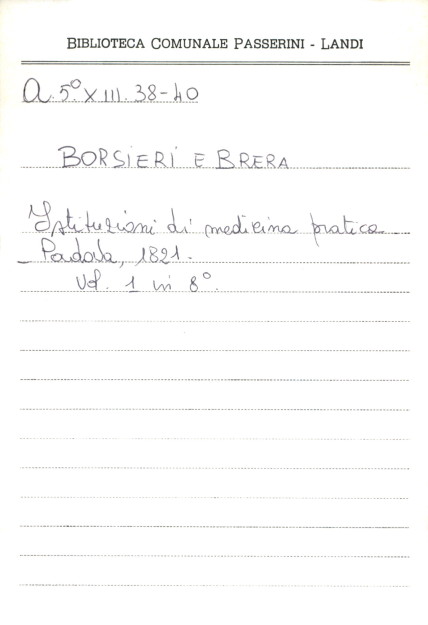 BIBLIOTECA COMUNALE PASSERINI - LANDI
A. 5° XIII. 38-40
BORSIERI E BRERA
Istituzioni di medicina pratica
Padova, 1821.
Vol. 1 in 8°.